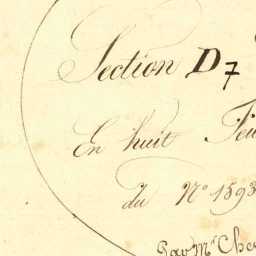 Section D 7
En huit
du N° 1593
Par Mr Che